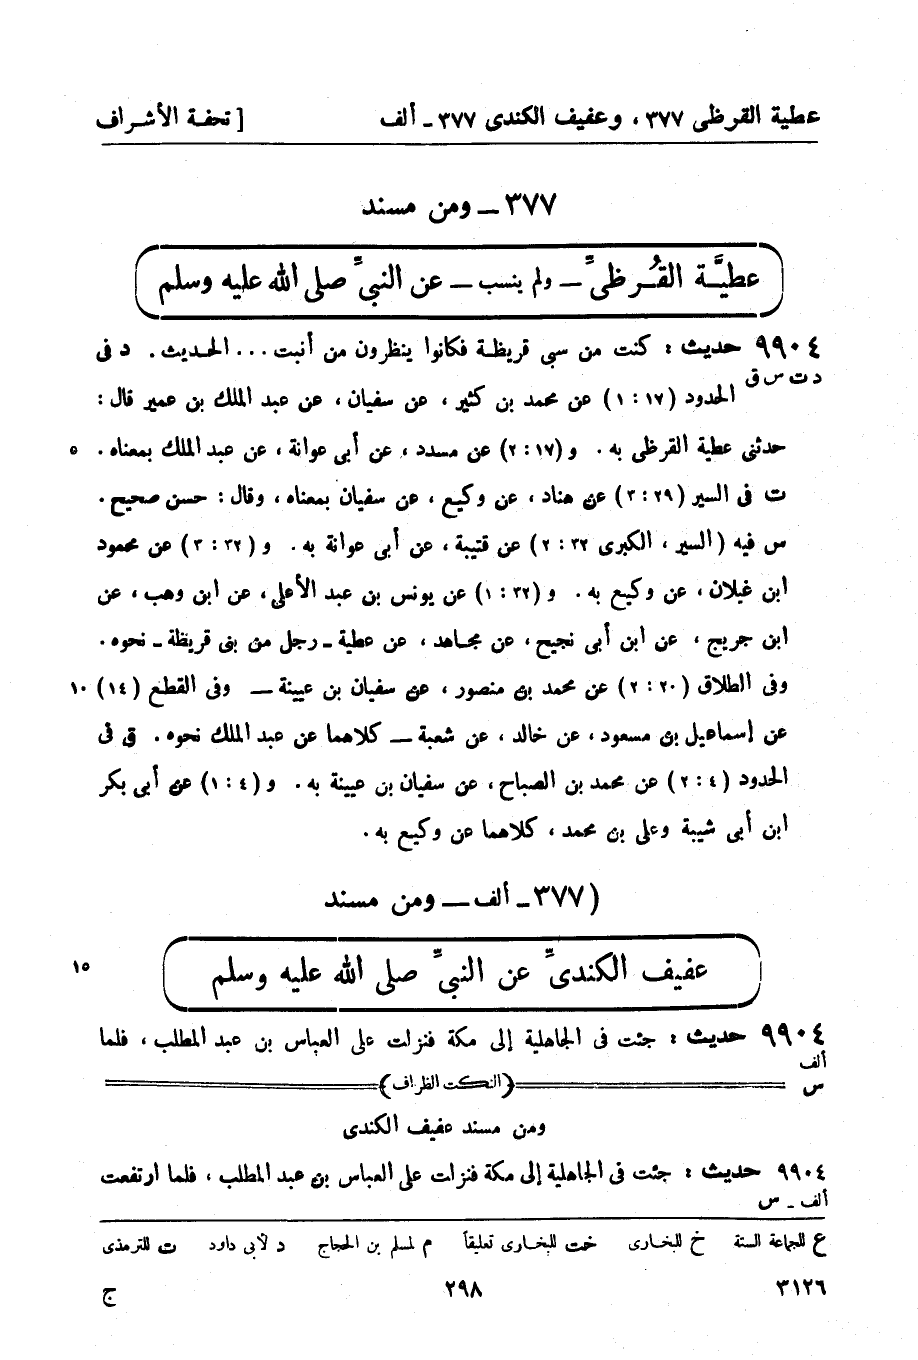 عطية القرظى ٣٧٧ ، وعفيف الكندى ٣٧٧ ـ ألف [ تحفة الأشراف
٣٧٧ ـ ومن مسند
عطيَّة القُرظىِّ ـ ولم ينسب ـ عن النبىِّ صلى الله عليه وسلم
٩٩٠٤ حديث : كنت من سبى قريظة فكانوا ينظرون من أنبت ... الحديث . د فى
د ت س ق
الحدود (١٧ : ١) عن محمد بن كثير ، عن سفيان ، عن عبد الملك بن عمير قال :
حدثنى عطية القرظى به . و (١٧ : ٢) عن مسدد ، عن أبى عوانة ، عن عبد الملك بمعناه . ٥
ت فى السير (٢٩ : ٣) عن هناد ، عن وكيع ، عن سفيان بمعناه ، وقال : حسن صحيح .
س فيه (السير ، الكبرى ٣٢ : ٢) عن قتيبة ، عن أبى عوانة به . و (٣٢ : ٣) عن محمود
ابن غيلان ، عن وكيع به . و (٣٢ : ١) عن يونس بن عبد الأعلى ، عن ابن وهب ، عن
ابن جريج ، عن ابن أبى نجيح ، عن مجاهد ، عن عطية ـ رجل من بنى قريظة ـ نحوه .
وفى الطلاق (٢٠ : ٢) عن محمد بن منصور ، عن سفيان بن عيينة ـ وفى القطع (١٤) ١٠
عن إسماعيل بن مسعود ، عن خالد ، عن شعبة ـ كلاهما عن عبد الملك نحوه . ق فى
الحدود (٤ : ٢) عن محمد بن الصباح ، عن سفيان بن عيينة به . و (٤ : ١) عن أبى بكر
ابن أبى شيبة وعلى بن محمد ، كلاهما عن وكيع به .
(٣٧٧ ـ ألف ـ ومن مسند
عفيف الكندىِّ عن النبىِّ صلى الله عليه وسلم ١٥
٩٩٠٤ حديث : جئت فى الجاهلية إلى مكة فنزلت على العباس بن عبد المطلب ، فلما
ألف
س
(النكت الظراف)
ومن مسند عفيف الكندى
٩٩٠٤ حديث : جئت فى الجاهلية إلى مكة فنزلت على العباس بن عبد المطلب ، فلما ارتفعت
ألف ـ س
ع للجماعة الستة خ للبخارى خت للبخارى تعليقاً م لمسلم بن الحجاج د لأبى داود ت للترمذى
٣١٢٦ ٢٩٨ ج